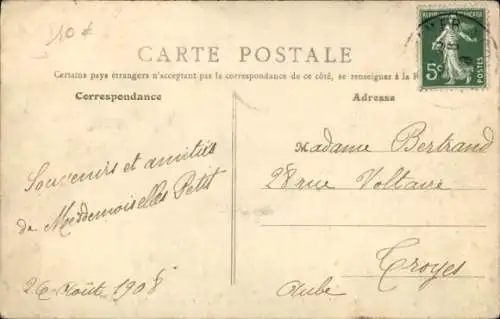 10 €
CARTE POSTALE
RÉPUBLIQUE FRANÇAISE
5c
POSTES
Certains pays étrangers n'acceptant pas la correspondance de ce côté, se renseigner à la
Correspondance
Adresse
Souvenirs et amitiés
de Meddemoiselles Petit
26 Août 1908
Madame Bertrand
28 rue Voltaire
Troyes
Aube